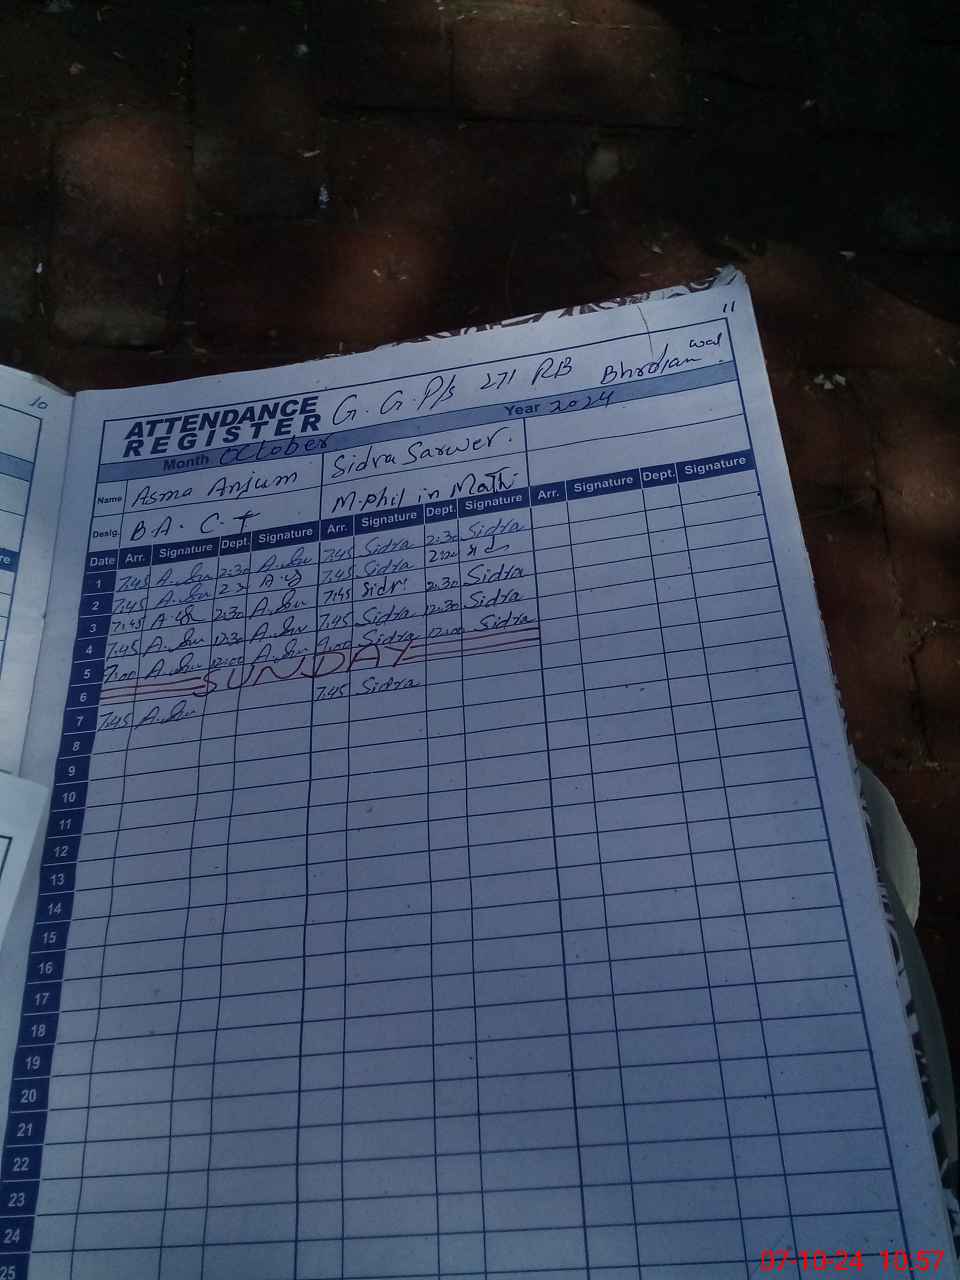 10
11
ATTENDANCE REGISTER G.G.P/s 271 RB Bhrolan wal
Month October Year 2024
Name Asma Anjum Sidra Sarwer.
Desig. B.A. C.T M.phil in Math
Date Arr. Signature Dept. Signature Arr. Signature Dept. Signature Arr. Signature Dept. Signature
1 7.45 2:30 7.45 Sidra 2:30 Sidra
2 7.45 7.45 Sidra
3 7.45 2:30 7.45 Sidr 2:30 Sidra
4 7.45 12:30 7.45 Sidra 12:30 Sidra
5 7:00 12:00 7:00 Sidra 12:00 Sidra
6 SUNDAY
7 7.45 7.45 Sidra
8
9
10
11
12
13
14
15
16
17
18
19
20
21
22
23
24
25
07-10-24 10:57